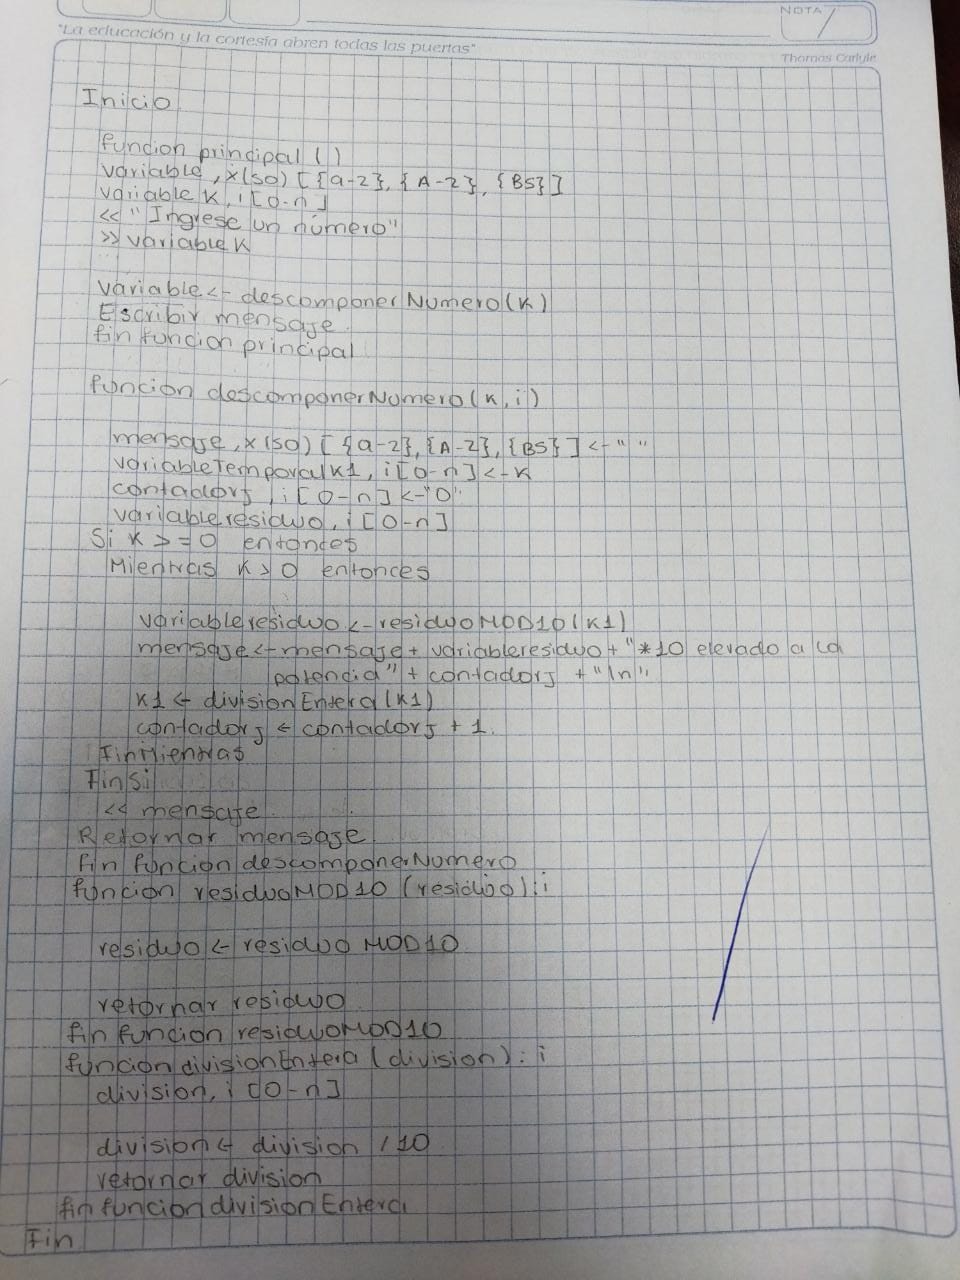 NOTA
"La educación y la cortesía abren todas las puertas"
Thomas Carlyle
Inicio
función principal ()
variable, x(50) [{a-z}, {A-Z}, {BS}]
variable k, i [0-n]
<< "Ingrese un número"
>> variable k
variable <- descomponerNumero(k)
Escribir mensaje.
fin funcion principal
funcion descomponerNumero(k, i)
mensaje, x(50) [{a-z}, {A-Z}, {BS}] <- " "
variableTemporalk1, i [0-n] <- k
contadorj, i [0-n] <- "0"
variableresiduo, i [0-n]
Si k >= 0 entonces
Mientras k > 0 entonces
variableresiduo <- residuoMOD10(k1)
mensaje <- mensaje + variableresiduo + "*10 elevado a la
potencia" + contadorj + "\n"
k1 <- divisionEntera(k1)
contadorj <- contadorj + 1.
FinMientras
FinSi
<< mensaje
Retornar mensaje.
fin funcion descomponerNumero
funcion residuoMOD10 (residuo): i
residuo <- residuo MOD10
retornar residuo
fin funcion residuoMOD10
funcion divisionEntera (division): i
division, i [0-n]
division <- division / 10
retornar division
fin funcion divisionEntera
Fin